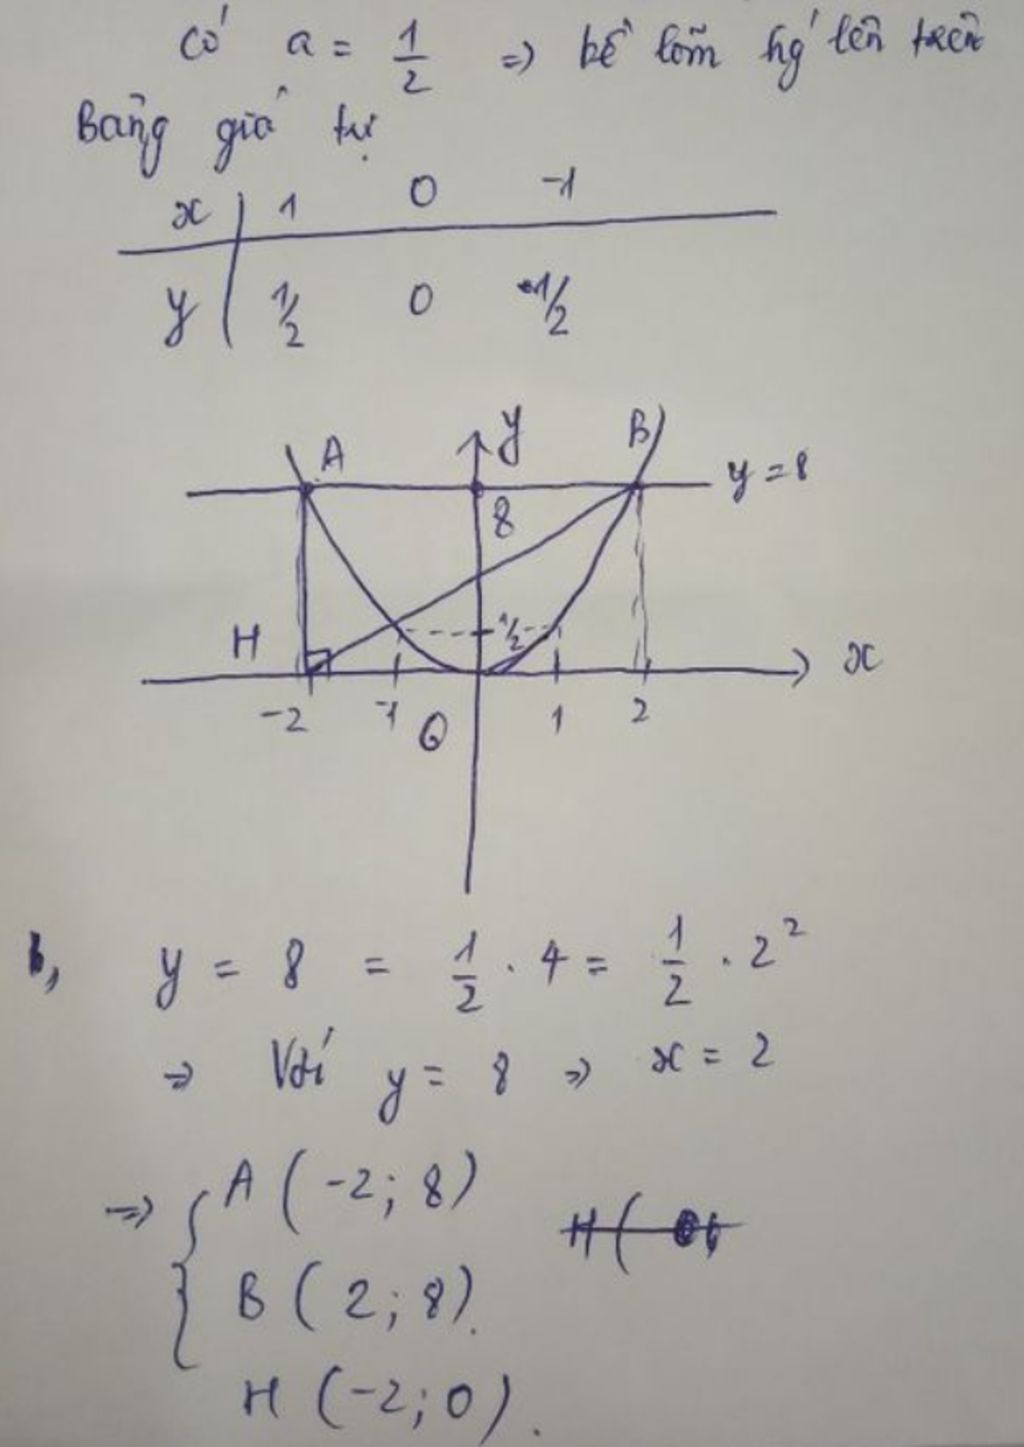 có a = 1/2 => bề lõm hg' lên trên
Bảng giá trị
x 1 0 -1
y 1/2 0 1/2
A y B
y = 8
8
H 1/2 x
-2 -1 O 1 2
b, y = 8 = 1/2 . 4 = 1/2 . 2²
=> Với y = 8 => x = 2
=> { A (-2; 8)
B (2; 8).
H (-2; 0).